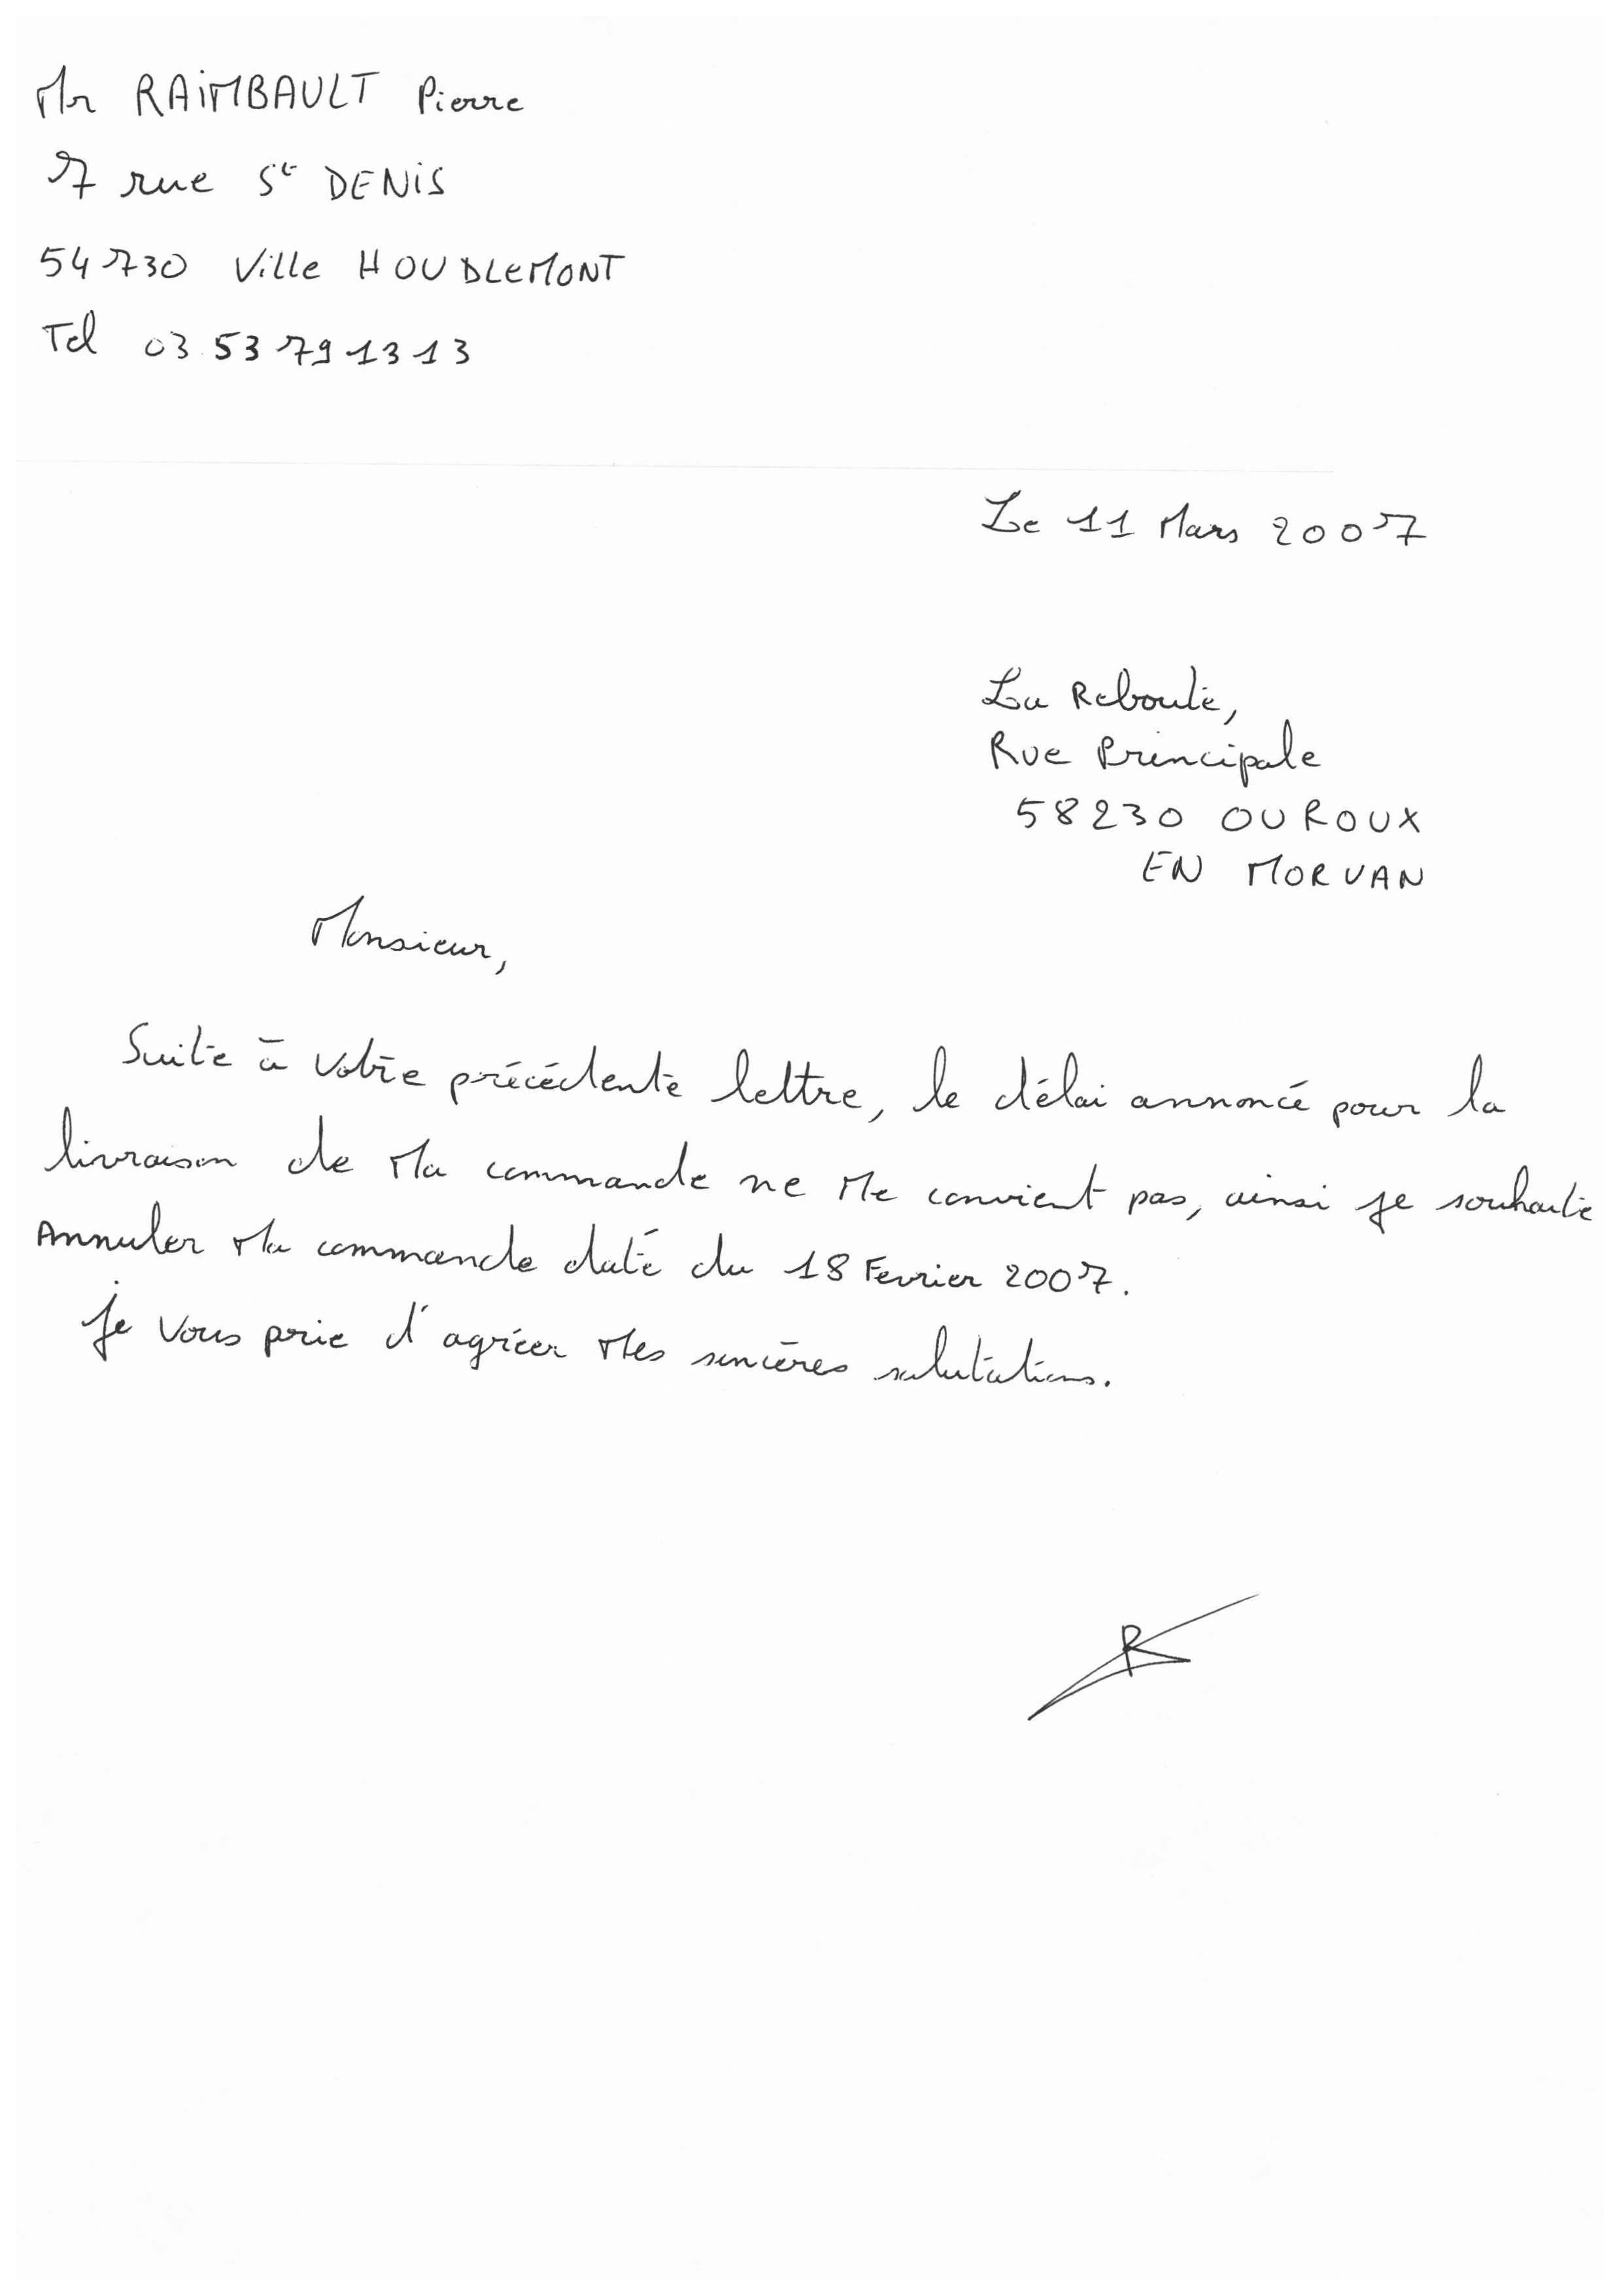 Mr RAIMBAULT Pierre
7 rue St DENIS
54730 Ville HOUDLEMONT
Tel 03 53 79 13 13
Le 11 Mars 2007
La Reboute,
Rue Principale
58230 OUROUX
EN MORVAN
Monsieur,
Suite à votre précédente lettre, le délai annoncé pour la
livraison de Ma commande ne Me convient pas, ainsi je souhaite
Annuler Ma commande daté du 18 Fevrier 2007.
Je vous prie d'agréer Mes sincères salutations.
R